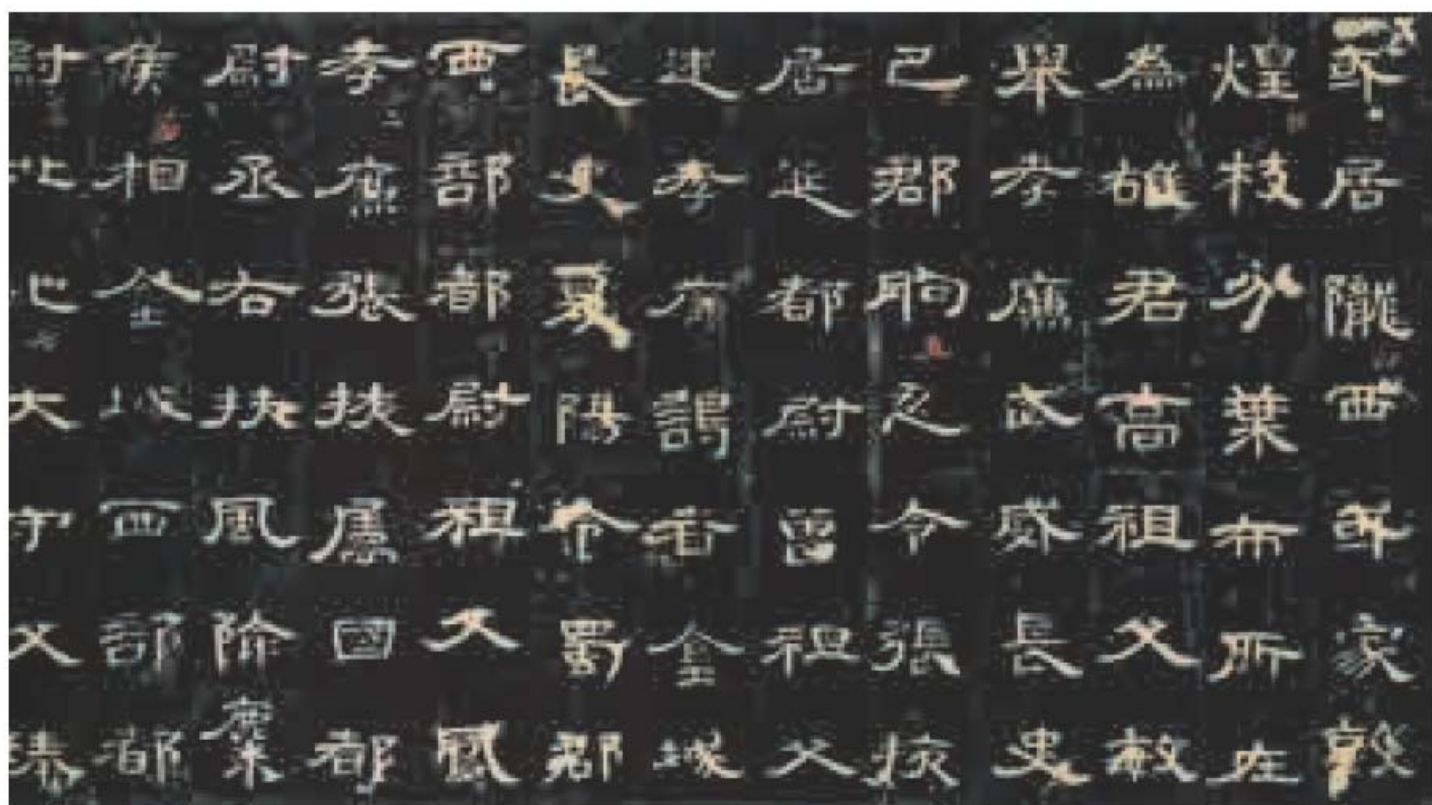 或居隴西或家敦
煌枝分葉布所在
為雄君高祖父敏
舉孝廉武威長史
巴郡朐忍令張掖
居延都尉曾祖父
述孝廉謁者金城
長史夏陽令蜀郡
西部都尉祖父鳳
孝廉張掖屬國都
尉丞右扶風隃麋
侯相金城西部都
尉北地大守父琫